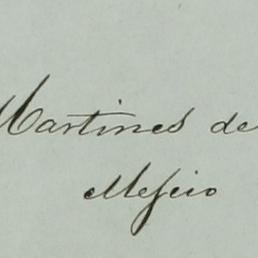 Martines de
Mejcio